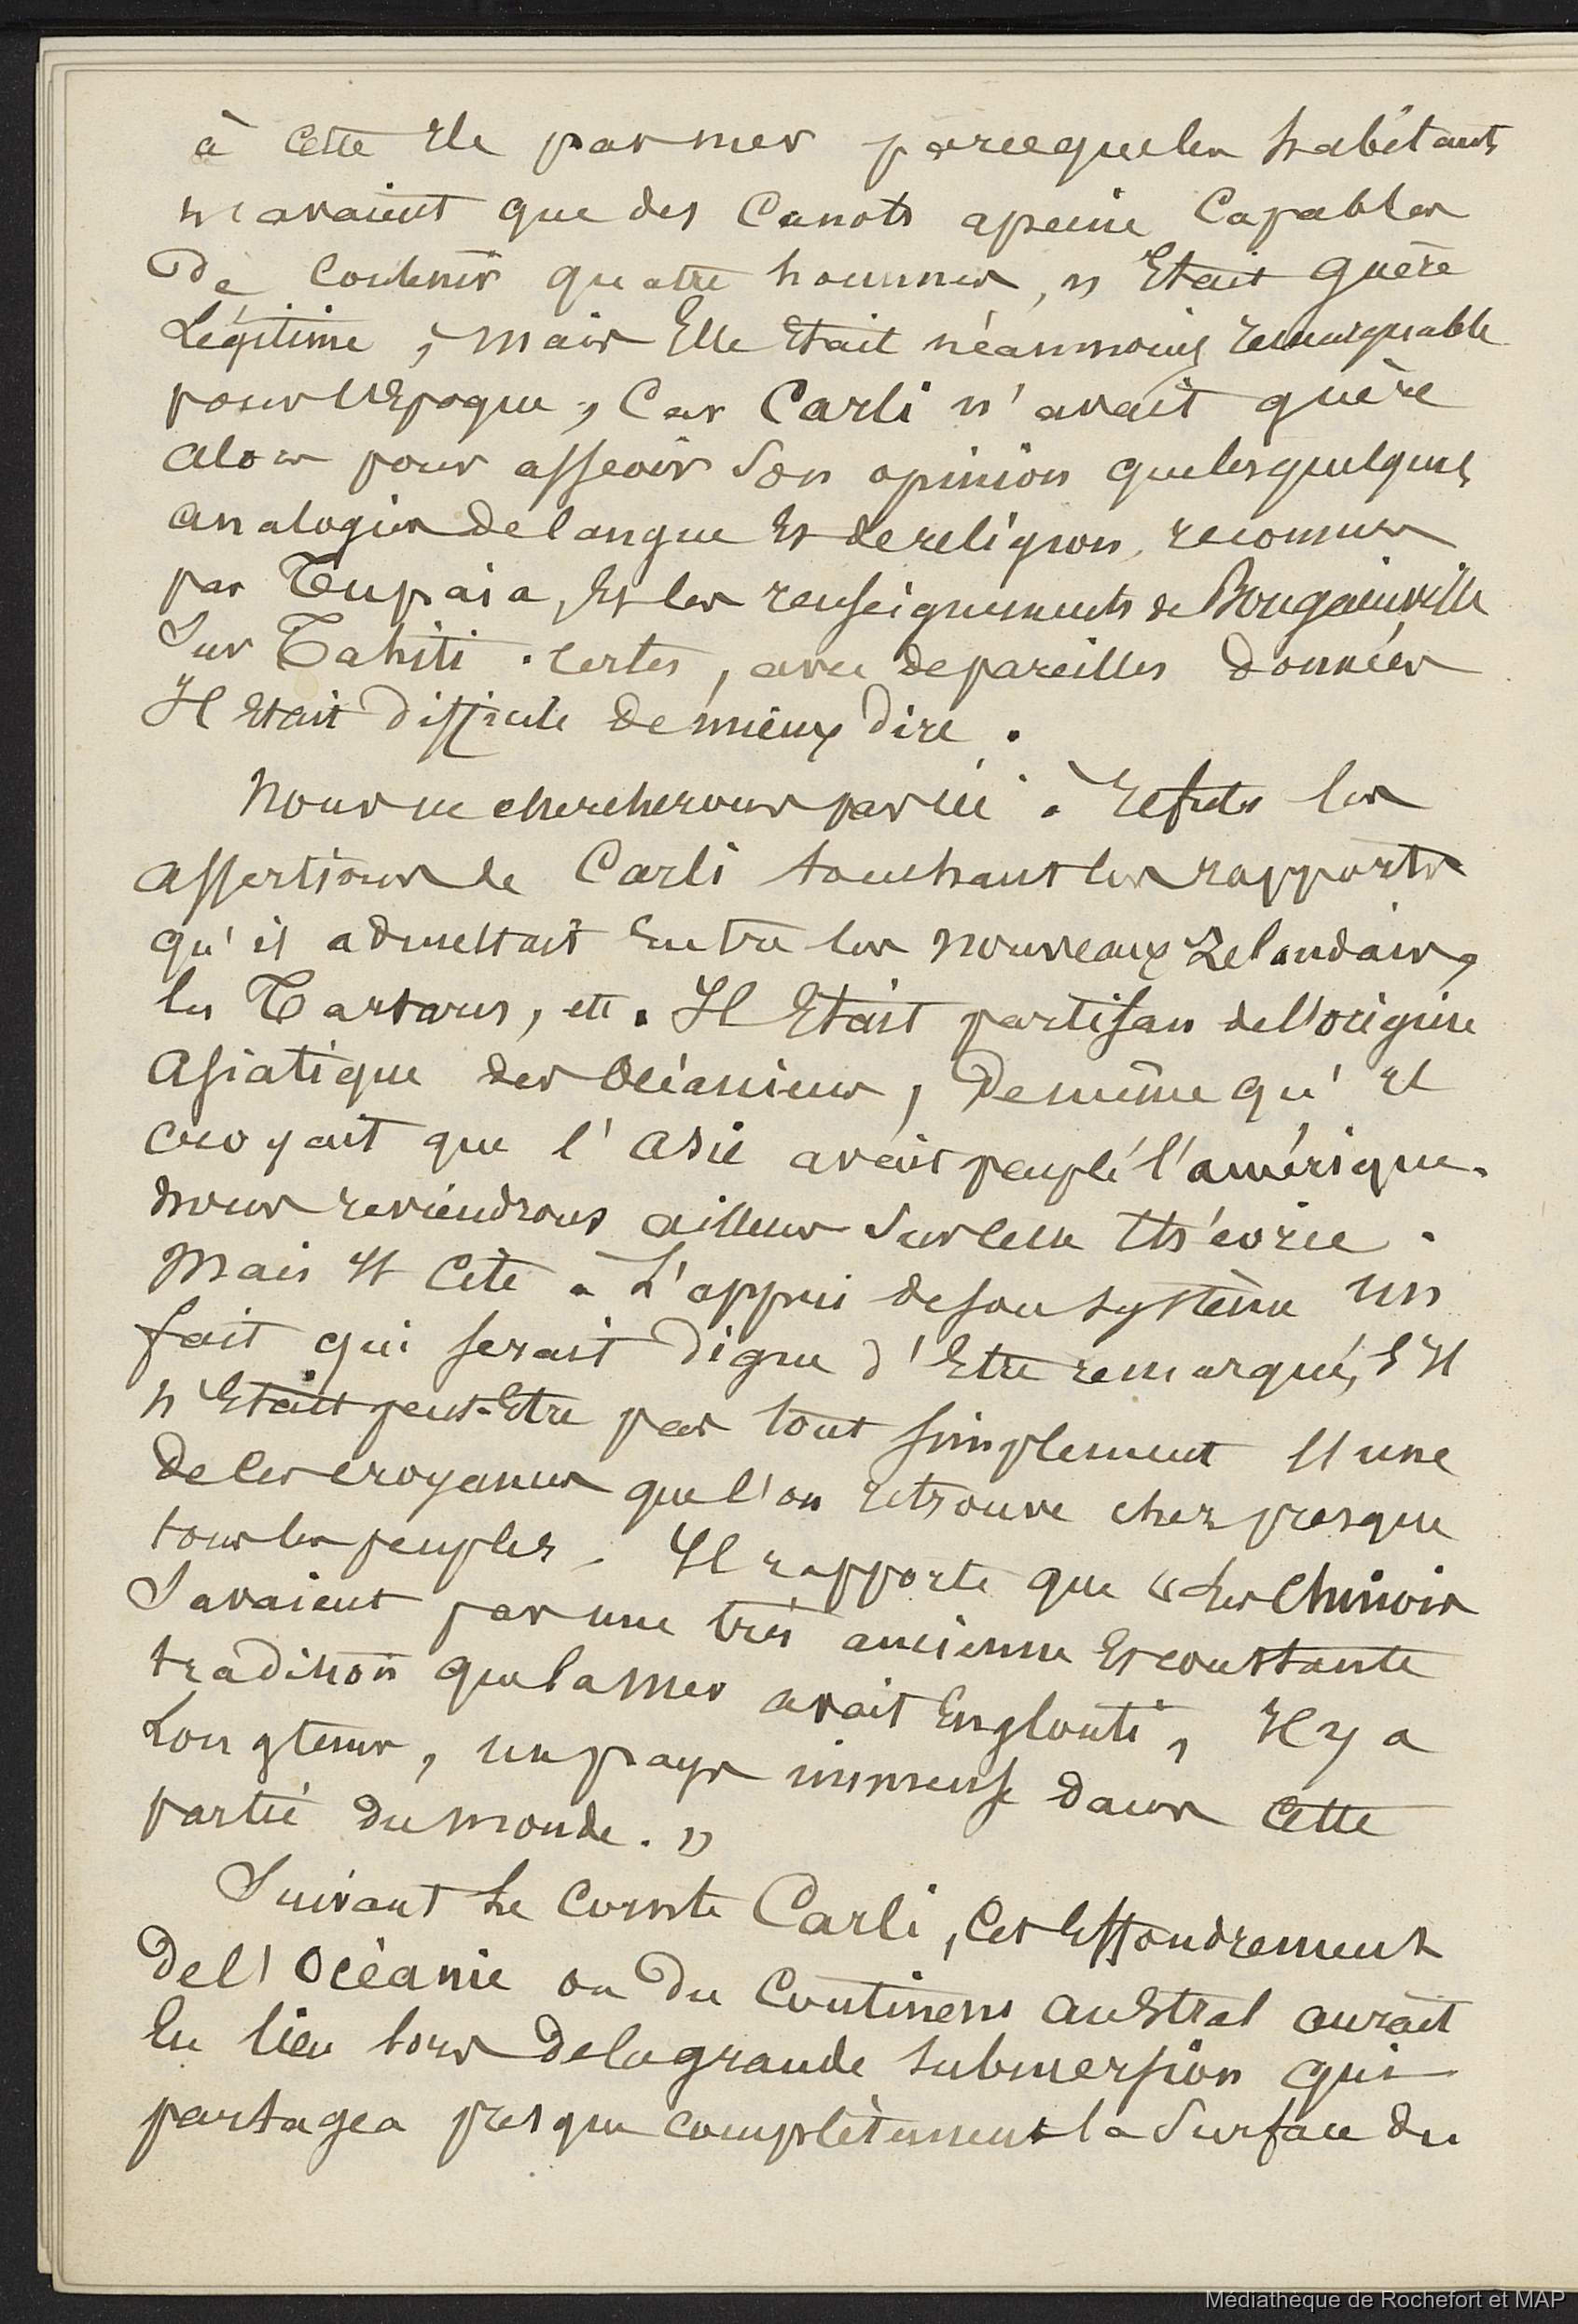 à cette Ile par mer parceque les habitants
n'avaient que des Canots apeine Capables
De Contenir quatre hommes, n'Etait guère
Légitime, mais Elle Etait néanmoins remarquable
pour l'Epoque, Car Carli n'avait guère
alors pour asseoir Son opinion que les quelques
analogies de langue Et de religion, reconnues
par Tupaia, Et les renseignements de Bougainville
Sur Tahiti. certes, avec de pareilles données
Il Etait difficile de mieux dire.
Nous ne chercherons pas ici à réfuter les
assertions de Carli touchant les rapports
qu'il admettait Entre les nouveaux Zelandais,
les Tartares, etc. Il Etait partisan de l'origine
asiatique des Océaniens, De même qu'il
croyait que l'asie avait peuplé l'amérique.
nous reviendrons ailleurs Sur cette théorie.
Mais Il Cite à L'appui de son système un
fait qui serait digne d'Etre remarqué, S'Il
n'Etait peut-Etre pas tout simplement l'une
de ces croyances que l'on retrouve chez presque
tous les peuples. Il rapporte que "Les Chinois
Savaient par une très ancienne Et constante
tradition que la mer avait Englouti, Il y a
Longtems, un pays immense dans Cette
partie du monde."
Suivant Le Comte Carli, Cet Effondrement
de l'Océanie ou du Continent auStral aurait
Eu lieu lors de la grande submersion qui
partagea presque complètement la Surface du
Médiathèque de Rochefort et MAP